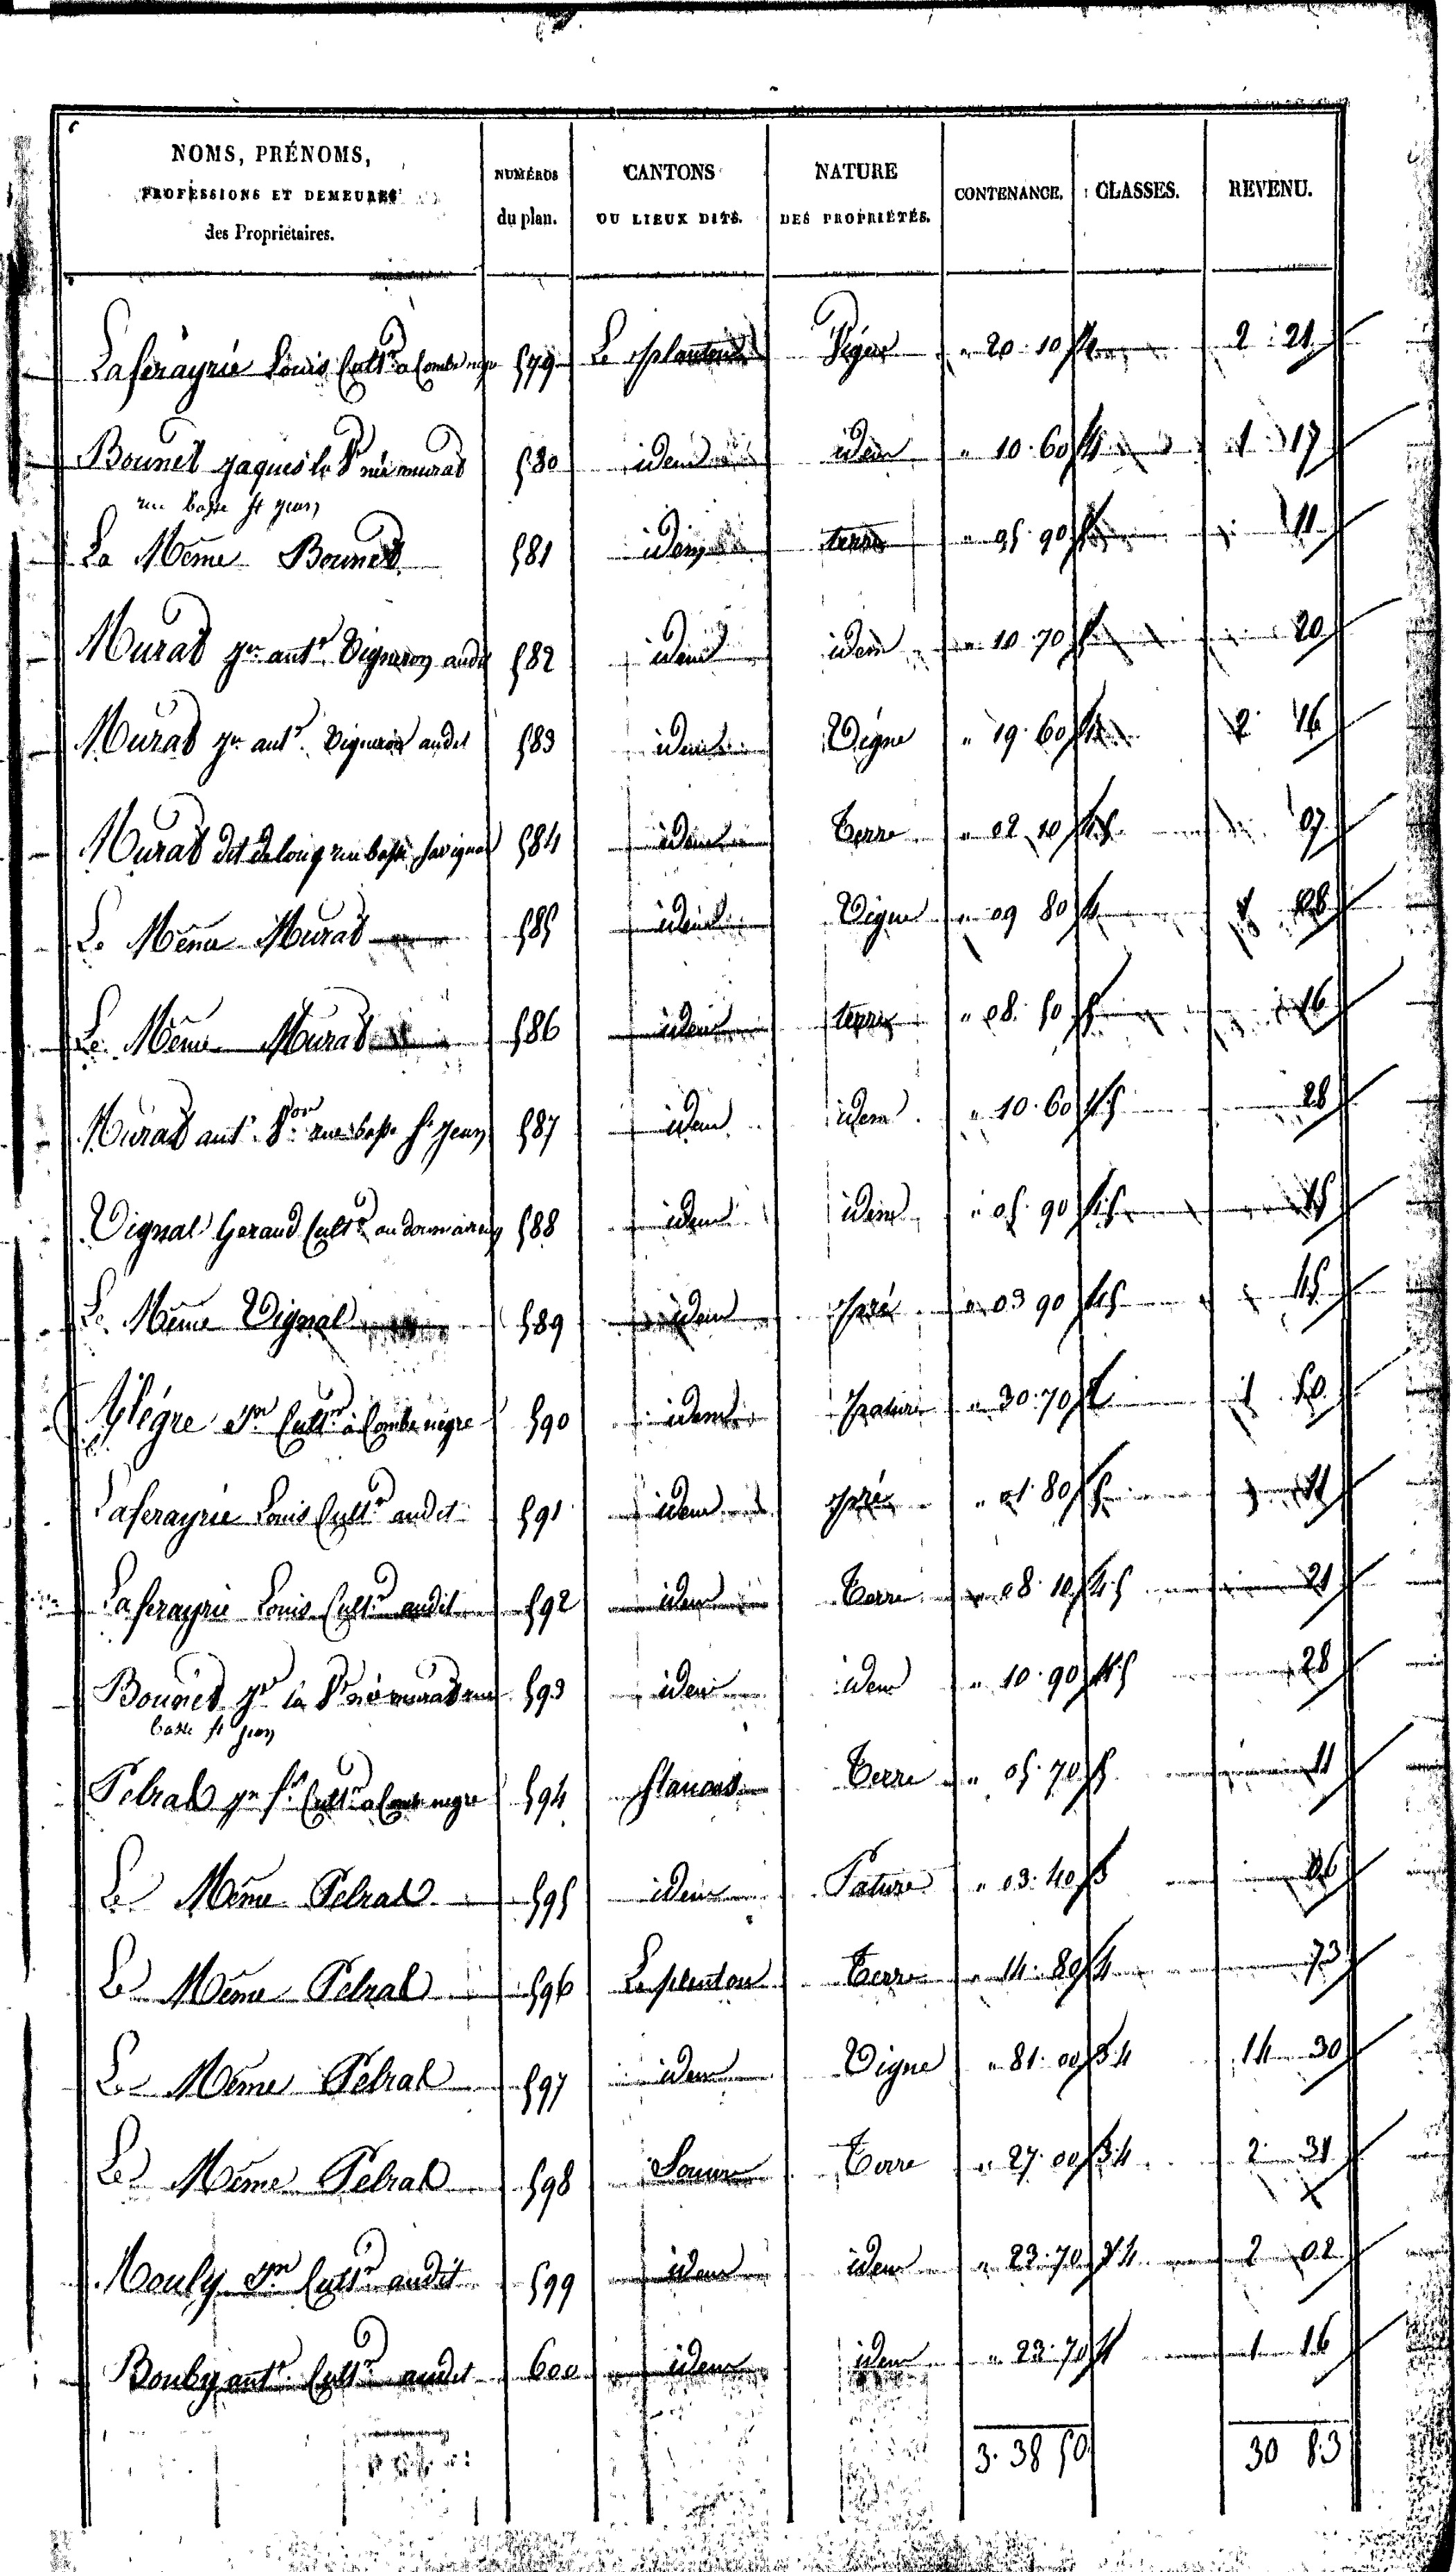 NOMS, PRÉNOMS, PROFESSIONS ET DEMEURES des Propriétaires. NUMÉROS du plan. CANTONS OU LIEUX DITS. NATURE DES PROPRIÉTÉS. CONTENANCE. CLASSES. REVENU.
Laferayrie Louis Cultr a Combe negre 579 Le plantou Vigne " 20.10 4 2 21
Bounet jaques la Ve née murat 580 idem idem " 10.60 4 1 17
rue basse st jean
La Même Bounet 581 idem terre " 05.90 5 11
Murat jn antne Vigneron audit 582 idem idem " 10.70 5 20
Murat jn antne Vigneron audit 583 idem Vigne " 19.60 4 2 16
Murat dit delong rue basse savignac 584 idem Terre " 02.10 4.5 07
Le Même Murat 585 idem Vigne " 09 80 4 1 08
Le Même Murat 586 idem terre " 08.50 5 16
Murat ant rue basse St jean 587 idem idem " 10.60 4.5 28
Vignal Geraud Cultr 588 idem idem " 05.90 4.5 15
Le Même Vignal 589 idem pré " 03 90 4.5 45
Alégre Jn Cultr à Combe negre 590 idem pature " 30.70 2 1 50
Laferayrie Louis Cultr audit 591 idem pré " 01.80 5 11
Laferayrie Louis Cultr audit 592 idem Terre " 08.10 4.5 21
Bounet jn la Ve née murat rue 593 idem idem " 10.90 4.5 28
basse st jean
Pelrat jn fs Cultr a Combe negre 594 flanars Terre " 05.70 5 11
Le Même Pelrat 595 idem Pature " 03.40 3 06
Le Même Pelrat 596 Le plantou Terre " 14.80 4 73
Le Même Pelrat 597 idem Vigne " 81.00 3.4 14 30
Le Même Pelrat 598 Terre " 27.00 3.4 2 31
Mouly Jn Cultr audit 599 idem idem " 23.70 3.4 2 02
Bouby antne Cultr audit 600 idem idem " 23.70 4 1 16
3.38 50 30 83